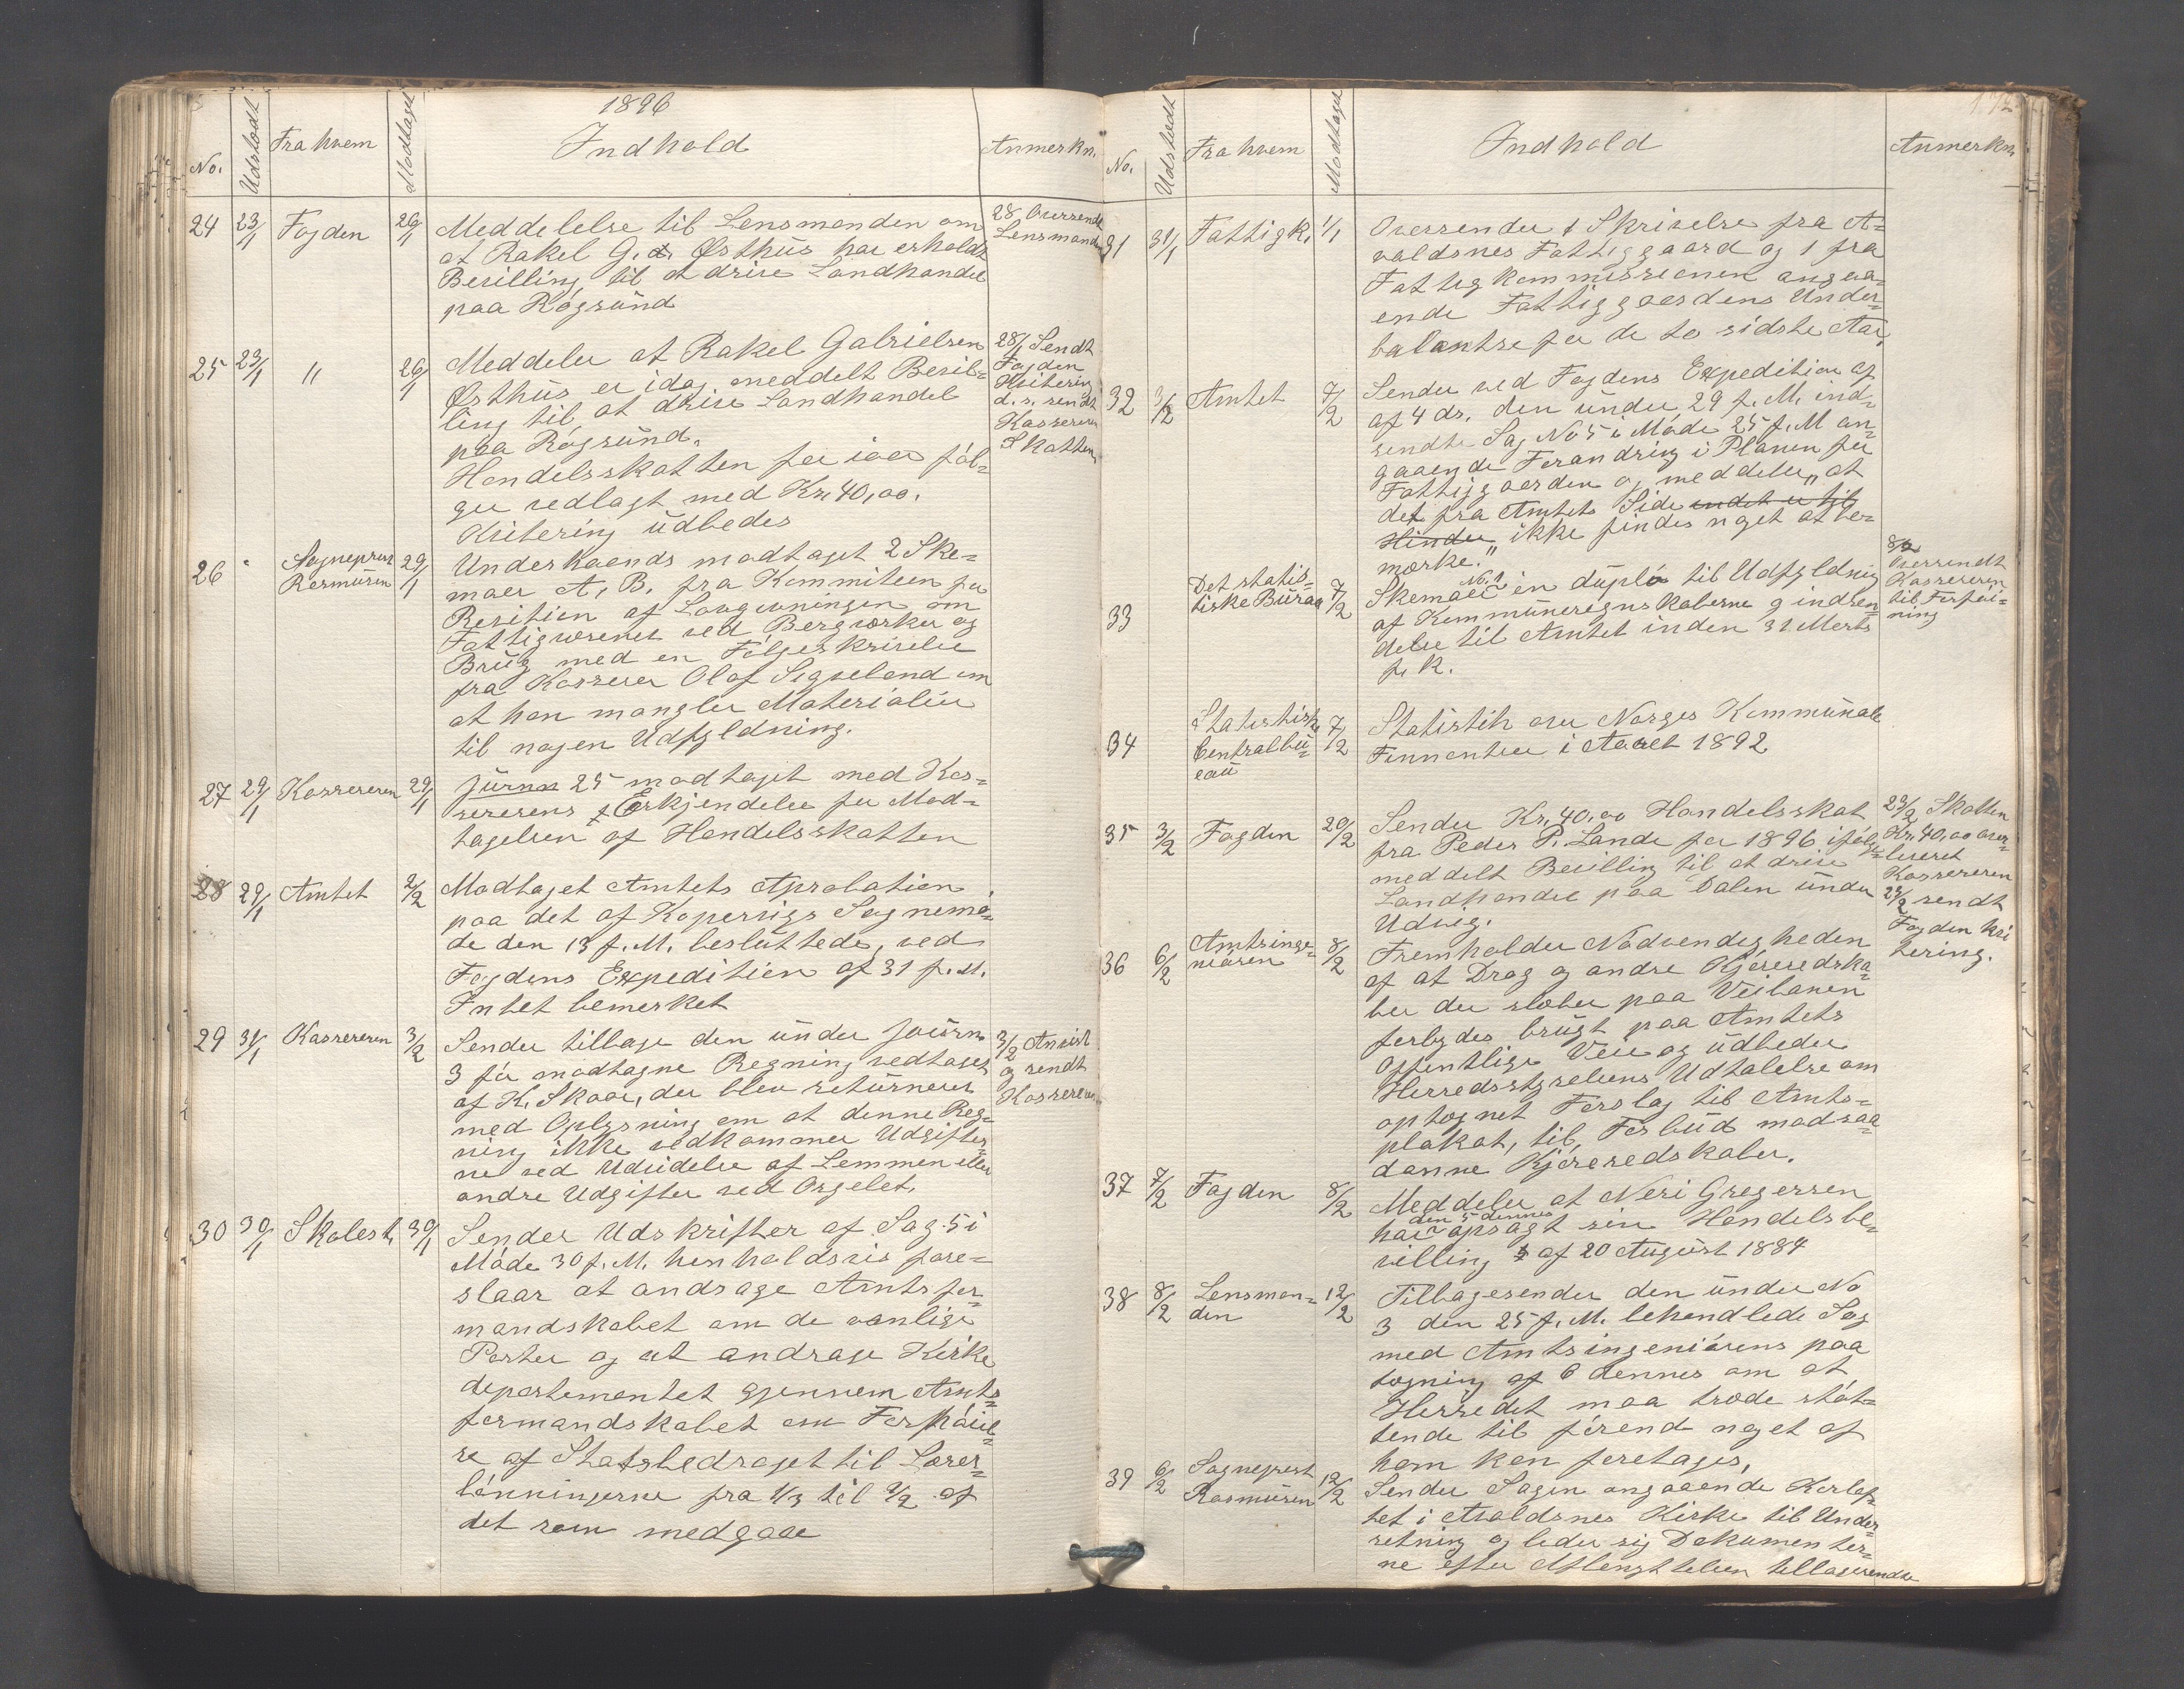 1896
No. Udstedt Fra hvem Modtaget Indhold Anmerkn.
24 23/1 Fogden 26/1 Meddelelse til Lensmanden om
at Rakel G. d. Østhus har erholdt
Bevilling til at drive Landhandel
paa Røgsund
28/1 Oversendt
Lensmanden
25 23/1 " 26/1 Meddeler at Rakel Gabrielsen
Østhus er idag meddelt Bevil-
ling til at drive Landhandel
paa Røgsund.
Handelsskatten for iaar føl-
ger vedlagt med Kr. 40,00.
Kvitering udbedes
28/1 Sendt
Fogden
Kvitering
d. s. sendt
Kassereren
Skatten
26 " Sogneprest
Rasmusen 29/1 Underhaands modtaget 2 Ske-
maer A, B, fra Kommiteen for
Revision af Lovgivningen om
Fattigvæsenet ved Bergværker og
Brug med en Følgeskrivelse
fra Kasserer Olaf Sigveland om
at han mangler Materialier
til nogen Udfyldning.
27 29/1 Kassereren 29/1 Journ 25 modtaget med Kas-
sererens Erkjendelse for Mod-
tagelsen af Handelsskatten
28 29/1 Amtet 2/2 Modtaget Amtets Aprobation
paa det af Kopervigs Sognemø-
de den 13 f. M. besluttede, ved
Fogdens Expedition af 31 f. M.
Intet bemerket
29 31/1 Kassereren 3/2 Sender tilbage den under Journ
3 før modtagne Regning vedtaget
af K. Skaar, der blev returneret
med Oplysning om at denne Reg-
ning ikke vedkommer Udgifter
ne ved Udvidelse af Lemmen eller
andre Udgifter ved Orgelet.
3/2 Anvist
og sendt
Kassereren
30 30/1 Skolest. 30/1 Sender Udskrifter af Sag 5 i
Møde 30 f. M. henholdsvis fore-
slaar at andrage Amtsfor-
mandskabet om de vanlige
Poster og at andrage Kirke
departementet gjennem Amts
formandskabet om Forhøiel-
se af Statsbidraget til Lærer-
lønningerne fra 1/3 til 1/2 af
det som medgaar
No. Udstedt Fra hvem Modtaget Indhold Anmerkn.
31 31/1 Fattigk. 1/1 Oversender 1 Skrivelse fra A-
valdsnes Fattiggaard og 1 fra
Fattigkommissionen angaa-
ende Fattiggaardens Under-
balantse for de to sidste Aar,
32 3/2 Amtet 7/2 Sender ved Fogdens Expedition af
af 4 ds. den under 29 f. M. ind-
sendte Sag No 5 i Møde 25 f. M an-
gaaende Forandring i Planen for
Fattiggaarden og meddeler, "at
det fra Amtets Side intet er til
Hinder" ikke findes noget at be-
mærke."
33 Det statis-
tiske Büraa 7/2 Skemaer No. 1 in duplo til Udfyldnig
af Kommuneregnskaberne og indsen-
delse til Amtet inden 31 Marts
f. k.
8/2
Oversendt
Kassereren
til Forføi-
ning
34 Statistiske
Centralbü-
eau 7/2 Statistik over Norges Kommunale
Finnantser i Aaret 1892
35 3/2 Fogden 20/2 Sender Kr. 40,00 Handelsskat
fra Peder P. Lande for 1896 ifølge
meddelt Bevilling til at drive
Landhandel paa Dalen under
Udvig.
23/2 Skatten
Kr. 40,00 over-
leveret
Kassereren
23/2 sendt
Fogden kvi
tering.
36 6/2 Amtsinge-
niøren 8/2 Fremholder Nødvendigheden
af at Drag og andre Kjøreredska-
ber der slæber paa Veibanen
forbydes brugt paa Amtets
offentlige Veie og udbeder
Herredsstyrelsens Udtalelse om
optegnet Forslag til Amts-
plakat, til, Forbud mod saa-
danne Kjøreredskaber.
37 7/2 Fogden 8/2 Meddeler at Neri Gregersen
har den 5 dennes opsagt sin Handelsbe-
villing af 20 August 1884
38 8/2 Lensman-
den 12/2 Tilbagesender den under No
3 den 25 f. M. behandlede Sag
med Amtsingeniørens paa
tegning af 6 dennes om at
Herredet maa træde støt-
tende til førend noget af
ham kan foretages,
39 6/2 Sogneprest
Rasmusen 12/2 Sender Sagen angaaende Korlof-
tet i Avaldsnes Kirke til Under-
retning og beder sig Dokumenter-
ne efter Afbenyttelsen tilbagesendte